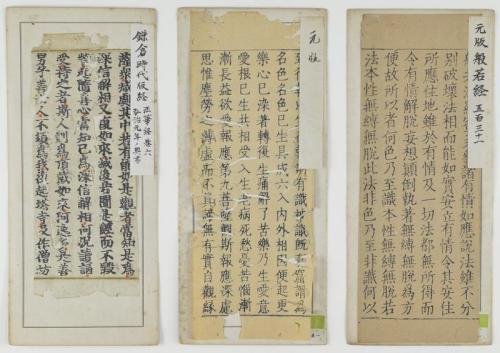 元版 般若経 五百三十一
諸有情如應說法雖不分
別破壞法相而能如實安立有情令其安住
所應住地雖於有情及一切法都無所得而
令有情解脫妄想顛倒執著無縛無脫為方
便故所以者何色乃至識本性無縛無脫若
法本性無縛無脫此法非色乃至非識何以
元版
所有識故識所
名色名色已生具成六入內外相因便起更
樂心已染著轉後生痛解了苦樂乃生愛意
愛根已生共相受入生老病死愁憂苦惱漸
漸長益欲受報應第九菩薩觀斯報應深處
思惟塵勞之縛虛而不真並無有實自觀緣
鎌倉時代版経 法華経 巻六
薩衆其中共有能如是觀者當知是為
深信解相又復如來滅後若聞是經而不毀
呰起隨喜心當知已為深信解相何況讀誦
受持之者斯人則為頂戴如來阿逸多是善
男子善女人不須為我復起塔寺及作僧坊